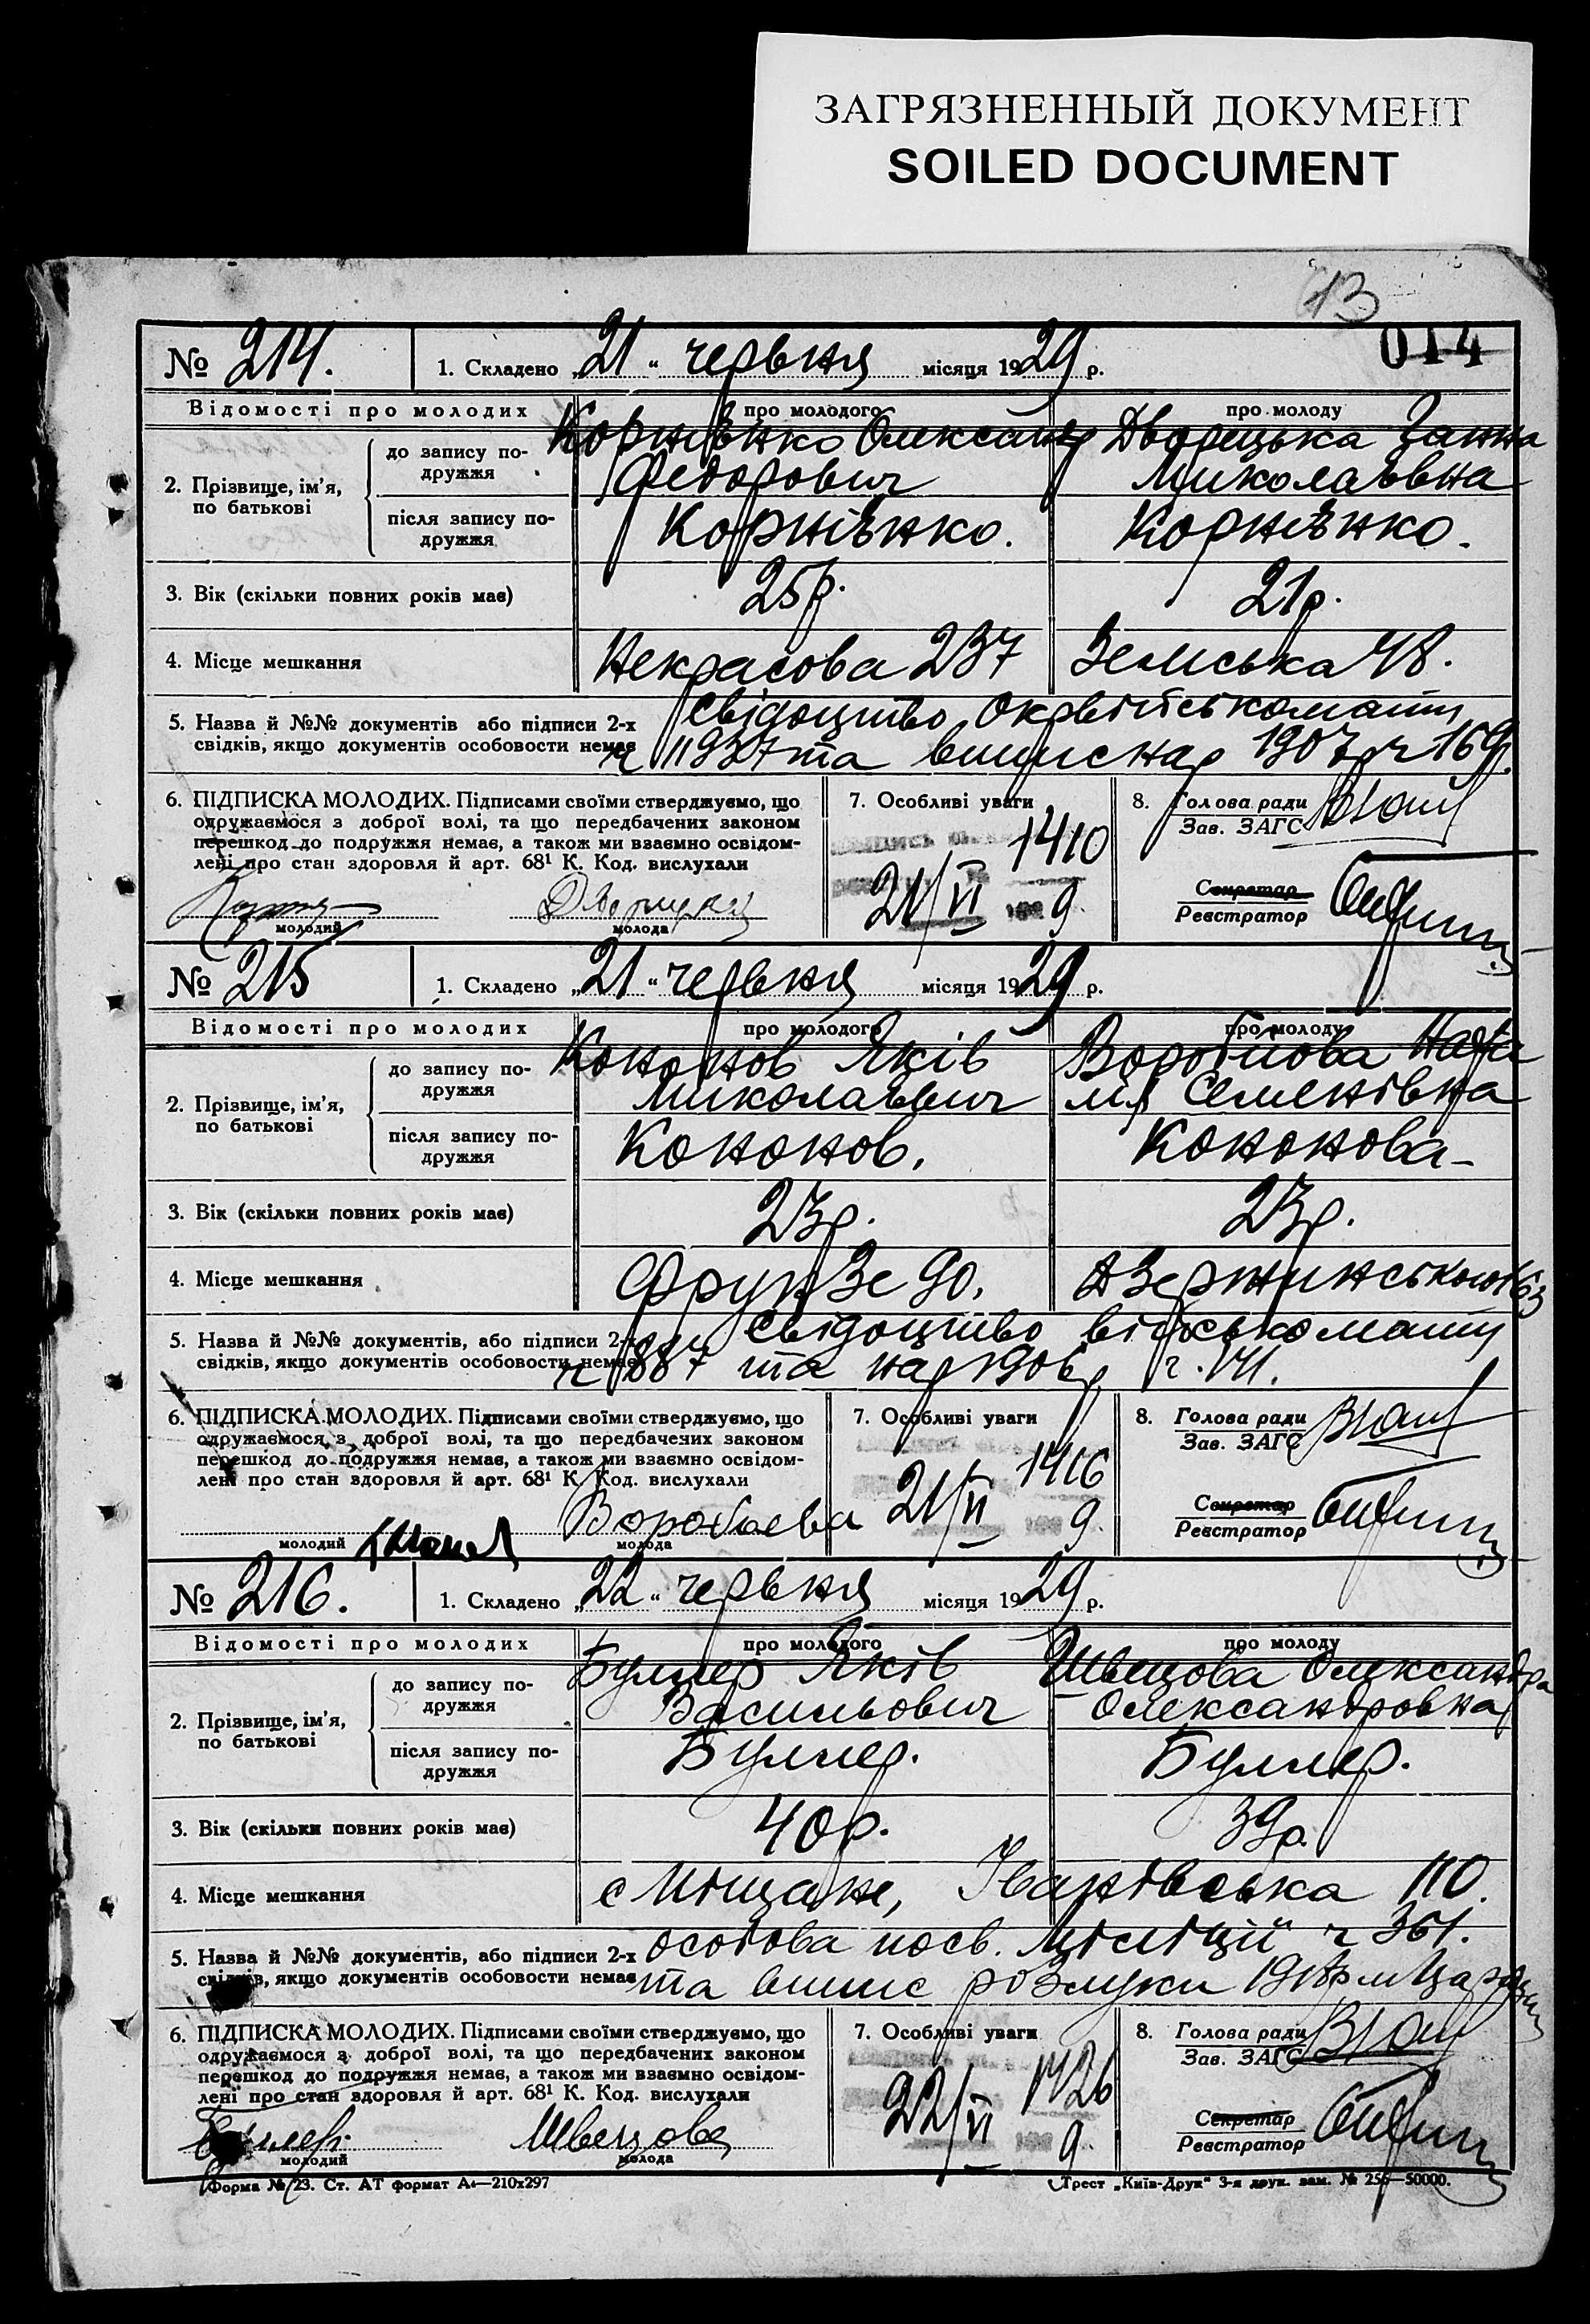 ЗАГРЯЗНЕННЫЙ ДОКУМЕНТ
SOILED DOCUMENT
13
014
№ 214. 1. Складено „21“ червня місяця 1929 р.
Відомості про молодих про молодого про молоду
2. Прізвище, ім’я, по батькові
до запису подружжя
Корнієнко Олександр Дворецька Ганна
Федорович Миколаївна
після запису по-
дружжя
Корнієнко. Корнієнко.
3. Вік (скільки повних років має) 25р. 21р.
4. Місце мешкання Некрасова 237 Земська 48.
5. Назва й №№ документів або підписи 2-х Свідоцтво Окрвійськомату
свідків, якщо документів особовости немає ч 11937 та виписка 1907р ч 169.
6. ПІДПИСКА МОЛОДИХ. Підписами своїми стверджуємо, що
одружаємося з доброї волі, та що передбачених законом
перешкод до подружжя немає, а також ми взаємно освідом-
лені про стан здоровля й арт. 68¹ К. Код. вислухали
молодий молода
7. Особливі уваги
1410
21/VI 9
8. Голова ради
Зав. ЗАГС
Секретар
Реєстратор
№ 215 1. Складено „21“ червня місяця 1929 р.
Відомості про молодих про молодого про молоду
2. Прізвище, ім’я,
по батькові
до запису по-
дружжя
Кононов Яків Воробйова Ната
Миколаєвич лія Семенівна
після запису по-
дружжя
Кононов. Кононова
3. Вік (скільки повних років має) 23р. 23р.
4. Місце мешкання Фрунзе 90. Дзержинського 163
5. Назва й №№ документів, або підписи 2-х Свідоцтво військомату
свідків, якщо документів особовости немає ч 887 та нар 1906р ч.
6. ПІДПИСКА МОЛОДИХ. Підписами своїми стверджуємо, що
одружаємося з доброї волі, та що передбачених законом
перешкод до подружжя немає, а також ми взаємно освідом-
лені про стан здоровля й арт. 68¹ К. Код. вислухали
Воробьева
молодий молода
7. Особливі уваги
1416
21/VI 9.
8. Голова ради
Зав. ЗАГС
Секретар
Реєстратор
№ 216. 1. Складено „22“ червня місяця 1929 р.
Відомості про молодих про молодого про молоду
2. Прізвище, ім’я,
по батькові
до запису по-
дружжя
Буллер Яків Швецова Олександра
Васильович Олександровна
після запису по-
дружжя
Буллер. Буллер.
3. Вік (скільки повних років має) 40р. 39р
4. Місце мешкання с Міщане, Іванівська 110.
5. Назва й №№ документів, або підписи 2-х особова посв. Міліції ч 361.
свідків, якщо документів особовости немає та випис розлуки
6. ПІДПИСКА МОЛОДИХ. Підписами своїми стверджуємо, що
одружаємося з доброї волі, та що передбачених законом
перешкод до подружжя немає, а також ми взаємно освідом-
лені про стан здоровля й арт. 68¹ К. Код. вислухали
Швецова
молодий молода
7. Особливі уваги
1426
22/VI 9.
8. Голова ради
Зав. ЗАГС
Секретар
Реєстратор
Форма № 23. Ст. АТ формат А₄—210х297 Трест „Київ-Друк“ 3-я друк. зам. № 256—50000.